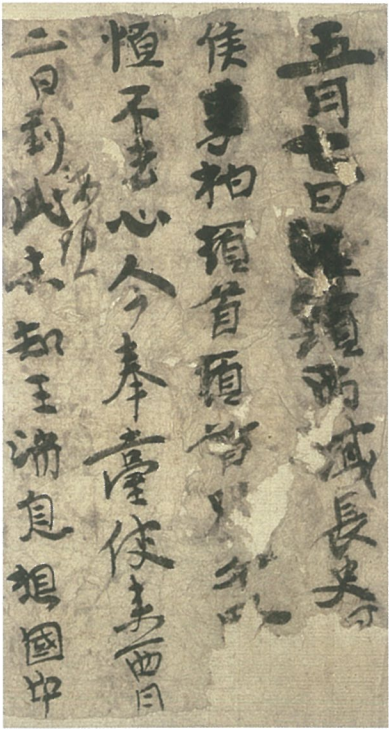 五月七日頭西域長史
侯李柏頓首頓首
恒不去心今奉臺使來西月
海頭
二日到此未知王消息想國中